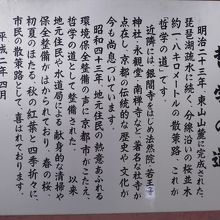 哲学の道
明治二十三年、東山山麓に完成された、
琵琶湖疏水に続く、分線沿いの桜並木
約一・八キロメートルの散策路、これが
哲学の道です。
近隣には、銀閣寺をはじめ法然院、若王子
神社、永観堂、南禅寺など、著名な社寺が
点在し、京都の伝統的な歴史や文化が
今も尚息づいています。
昭和四十年代に住民の熱意から
環の保全整備の声に京都市がこたえ、
哲学の道として整備された。以来
地元住民や水道局による献身的な清掃や
保全整備がはかられており、春の桜
初夏のほたる、秋の紅葉と四季折々に
市民の散策路として、喜ばれております。
平成二年四月